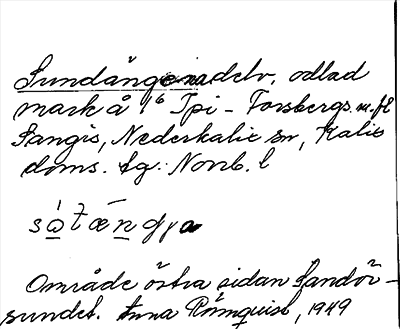 Sundängena delv. odlad
mark å 1⁶ Tpi - Forsbergs m.fl
Sangis, Nederkalix sn, Kalix
doms. tg: Norrb. l
Område östra sidan Sandör-
sundet. Anna Rönnquist, 1949